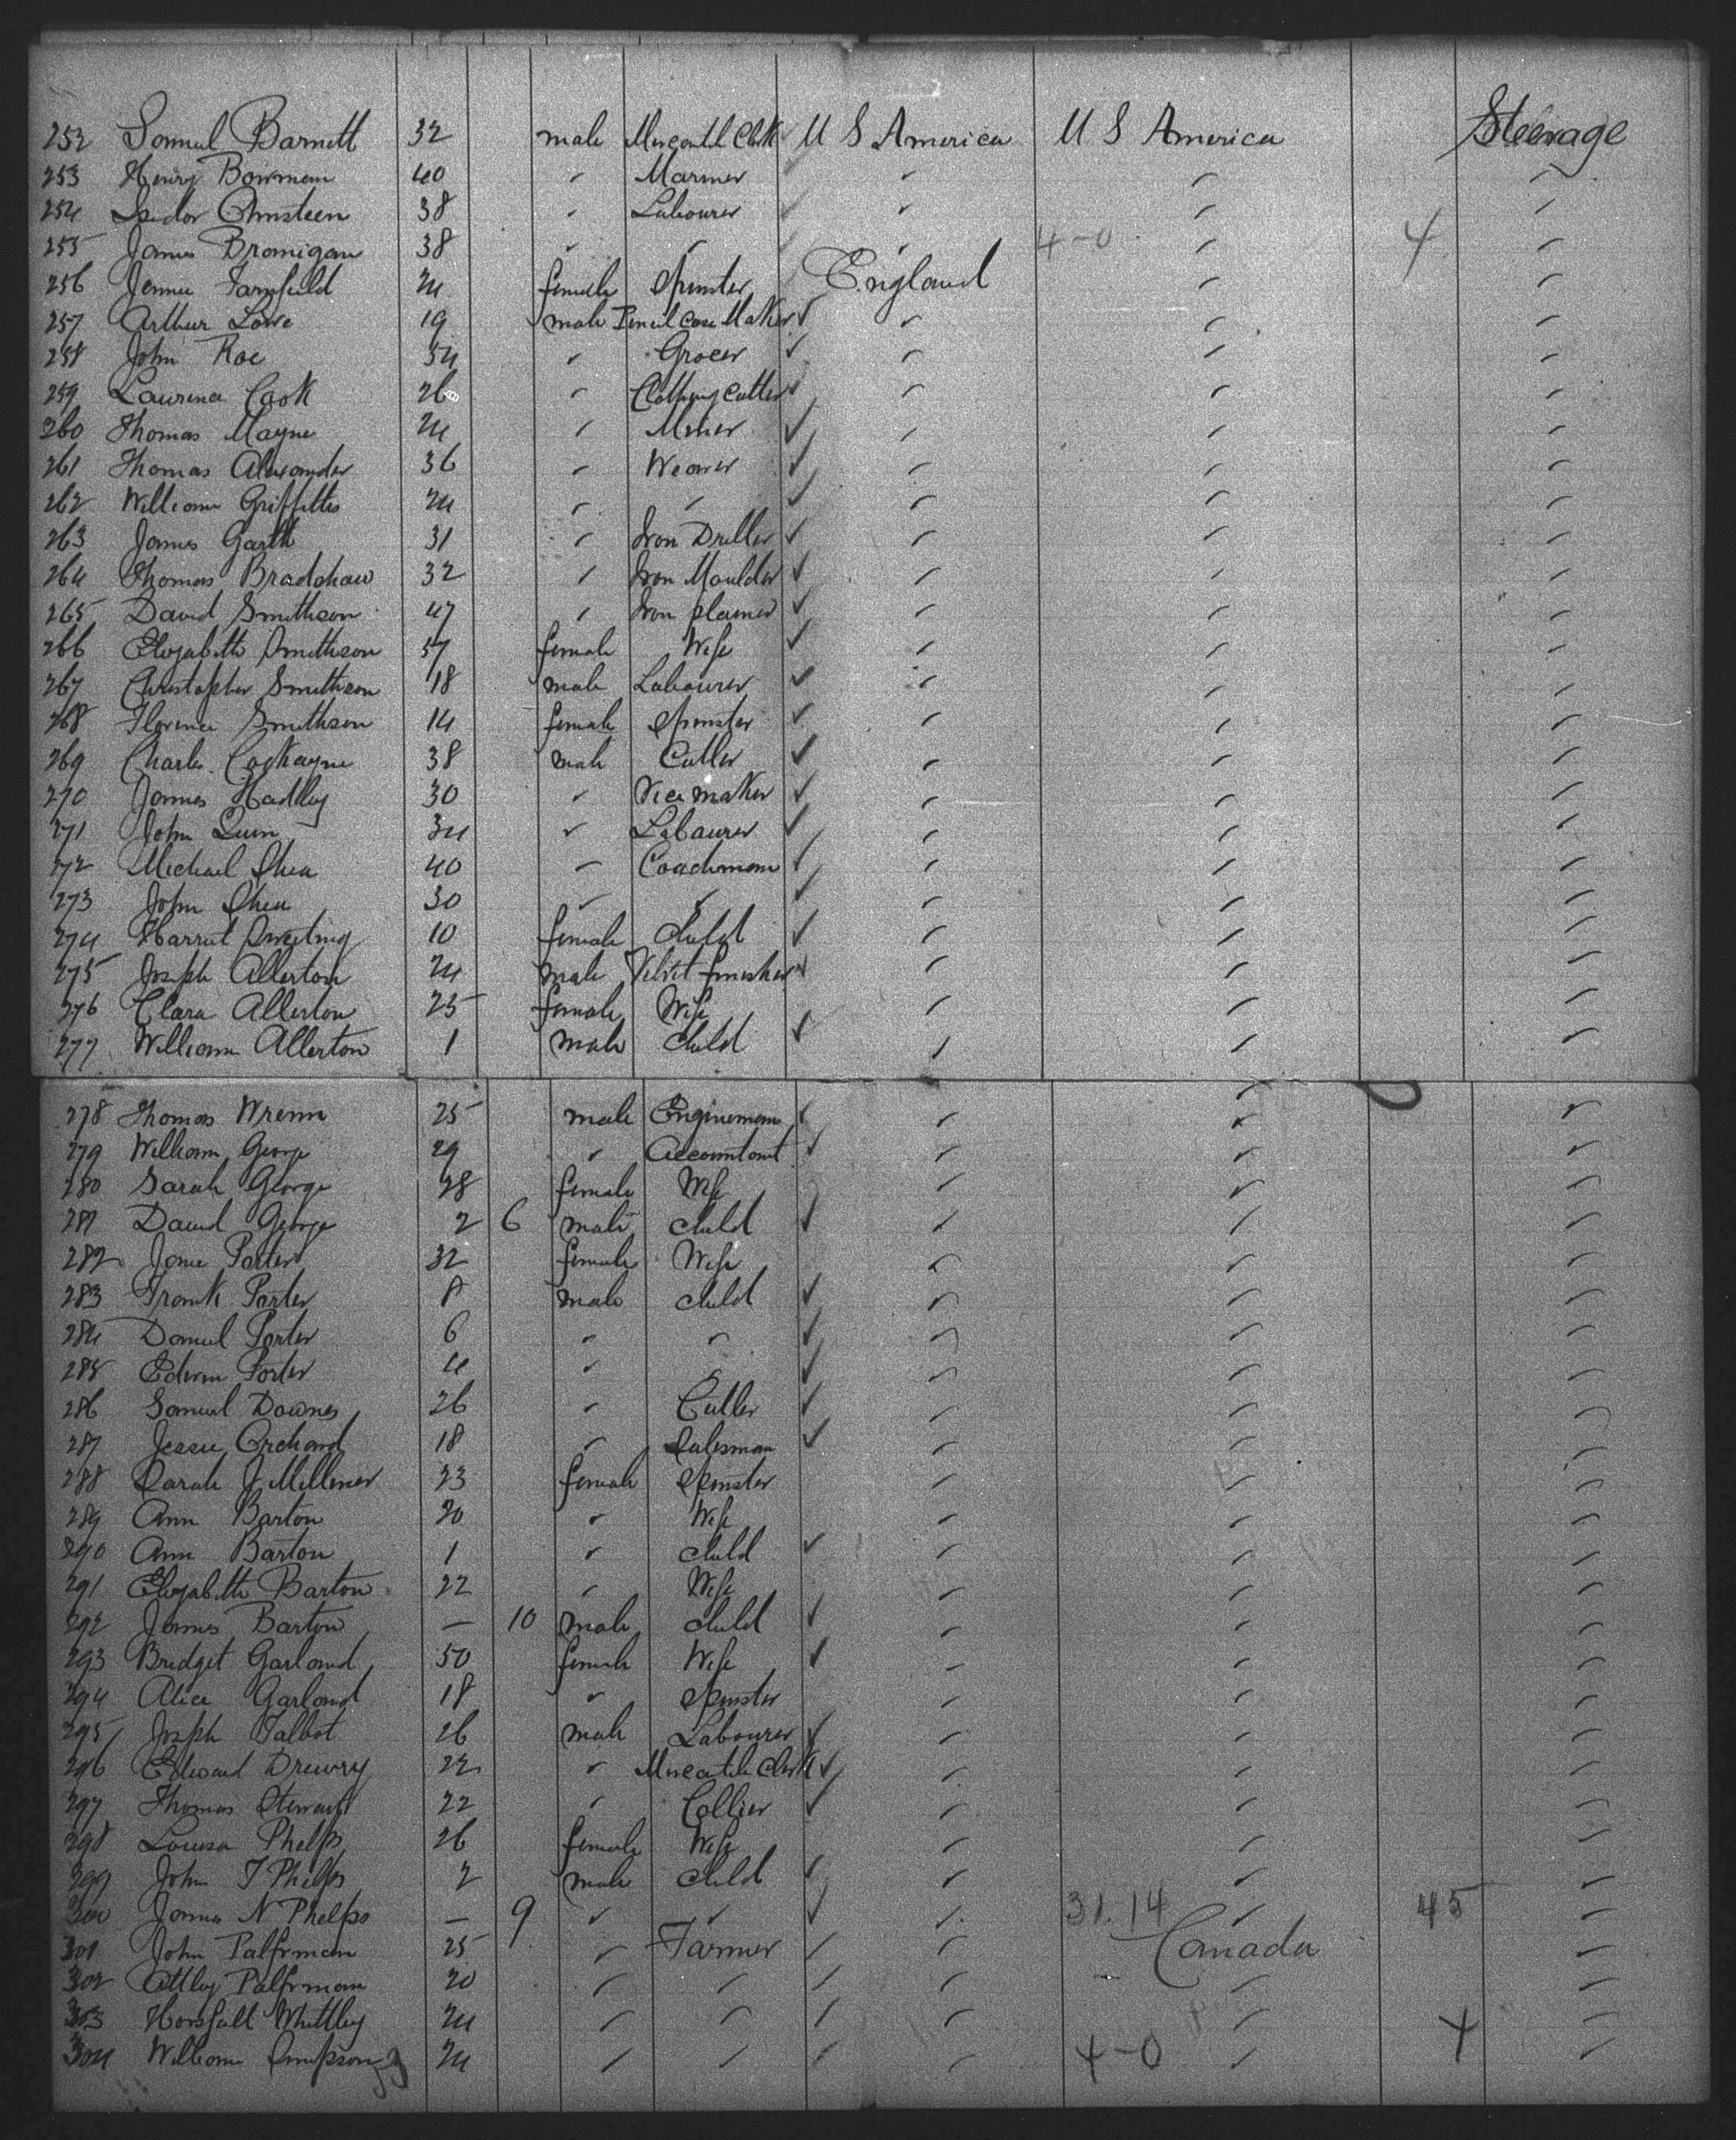 252 Samuel Barnett 32 male Mercantile Clerk U S America U S America Steerage
253 Henry Bowman 40 " Mariner " " "
254 Isidor 38 " Labourer " " "
255 James Branigan 38 " " " 4-0 " 4 "
256 Jennie 24 female Spinster England " "
257 Arthur Lowe 19 male Pencil Case Maker " " "
258 John Roe 54 " Grocer " " "
259 Laurence Cook 26 " Clothing Cutter " " "
260 Thomas Mayne 24 " Miner " " "
261 Thomas Alexander 36 " Weaver " " "
262 William Griffiths 24 " " " " "
263 James Garth 31 " Iron Driller " " "
264 Thomas Bradshaw 32 " Iron Moulder " " "
265 David Smithson 47 " Iron planer " " "
266 Elizabeth Smithson 57 female Wife " " "
267 Christopher Smithson 18 male Labourer " " "
268 Florence Smithson 14 female Spinster " " "
269 Charles Cockayne 38 male Cutler " " "
270 James Hadley 30 " Vice maker " " "
271 John Quin 34 " Labourer " " "
272 Michael Shea 40 " Coachman " " "
273 John Shea 30 " " " " "
274 Harriet Sweeting 10 female child " " "
275 Joseph Allerton 24 male Velvet finisher " " "
276 Clara Allerton 25 female Wife " " "
277 William Allerton 1 male child " " "
278 Thomas Wrenn 25 male Engineman " " "
279 William George 29 " Accountant " " "
280 Sarah George 28 female Wife " " "
281 David George 2 6 male child " " "
282 Jane Porter 32 female Wife " " "
283 Frank Porter 8 male child " " "
284 Daniel Porter 6 " " " " "
285 Edwin Porter 4 " " " " "
286 Samuel Downes 26 " Cutler " " "
287 Jesse Orchard 18 " Salesman " " "
288 Sarah J Millener 23 female Spinster " " "
289 Ann Barton 20 " Wife " " "
290 Ann Barton 1 " child " " "
291 Elizabeth Barton 22 " Wife " " "
292 James Barton — 10 male child " " "
293 Bridget Garland 50 female Wife " " "
294 Alice Garland 18 " Spinster " " "
295 Joseph Talbot 26 male Labourer " " "
296 Edward Drewry 22 " Mercantile Clerk " " "
297 Thomas Stewart 22 " Collier " " "
298 Louisa Phelps 26 female Wife " " "
299 John T Phelps 2 male child " " "
300 James N Phelps — 9 " " " 31.14 " 45 "
301 John Palfrman 25 " Farmer " Canada "
302 Palfrman 20 " " " " "
303 Horsfall Whittley 24 " " " " 4 "
304 William Simpson 24 " " " 4-0 " "